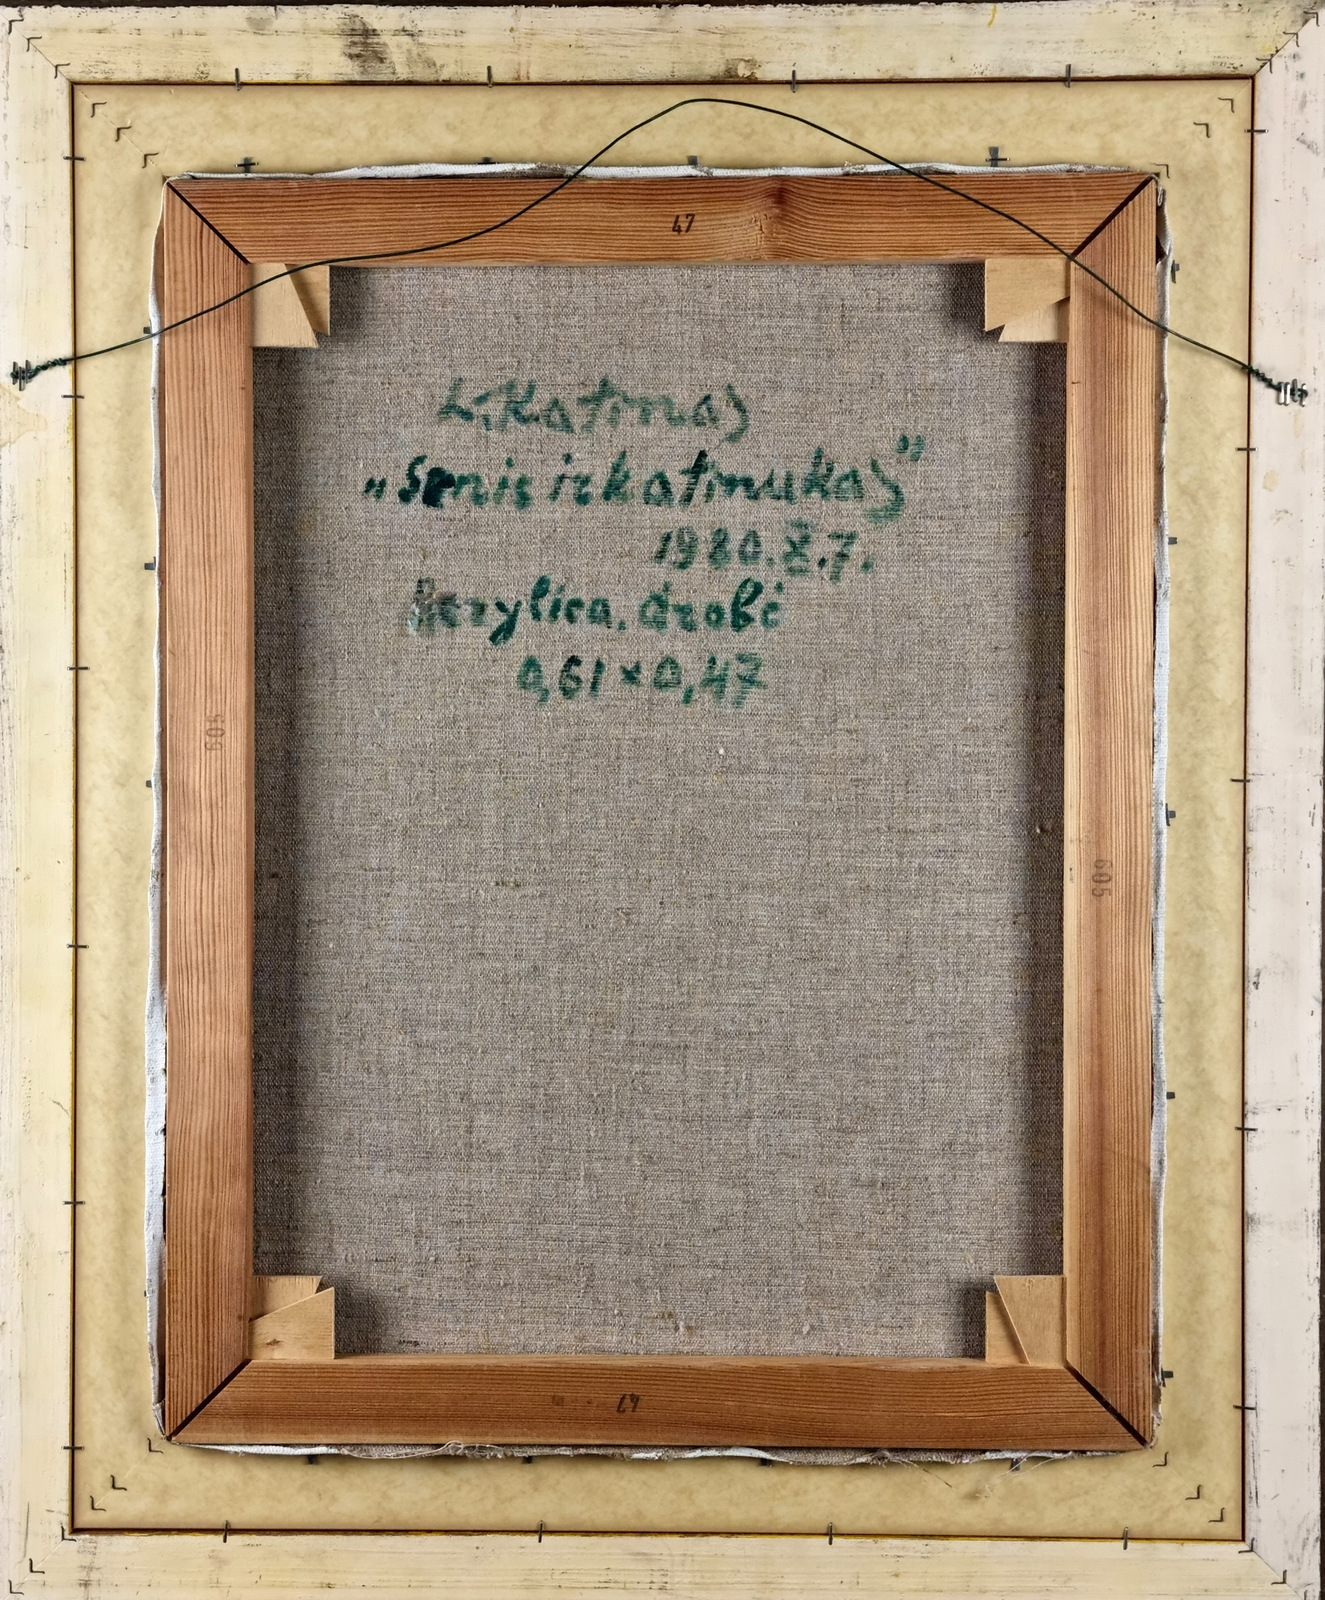 47
L. Katinas
„Senis ir katinukas"
1980.X.7.
Akrylica. drobė
0,61 × 0,47
605
605
47